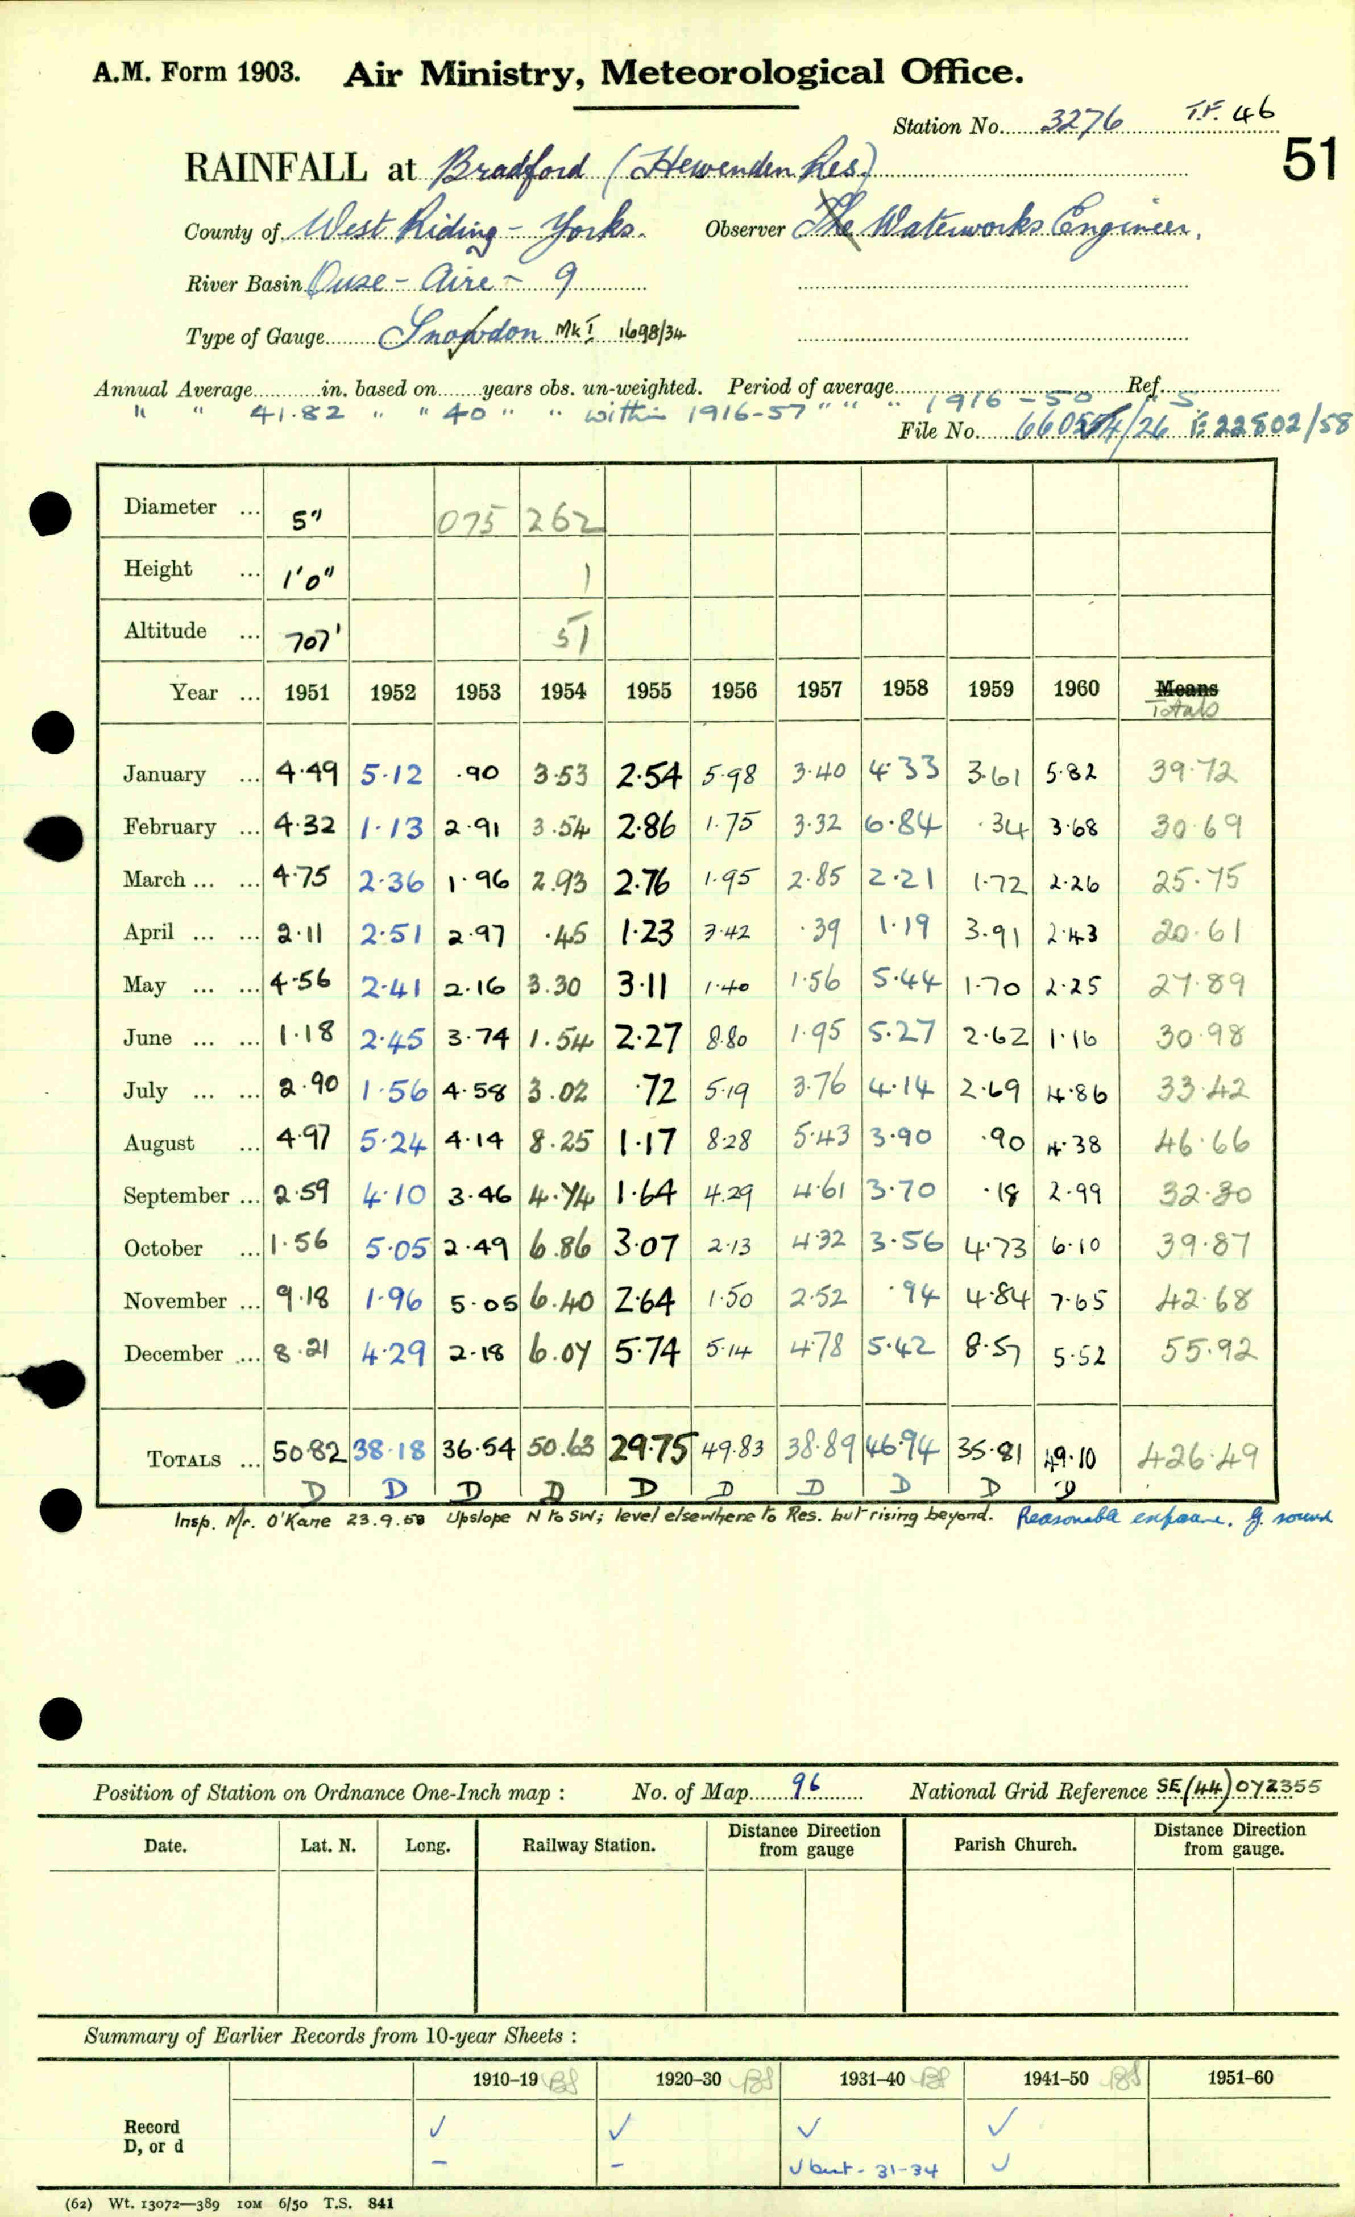 A.M. Form 1903. Air Ministry, Meteorological Office.
Station No. 3276 T.F. 46
51
RAINFALL at Bradford (Hewenden Res.)
County of West Riding - Yorks. Observer The Waterworks Engineer,
River Basin Ouse - Aire - 9
Type of Gauge Snowdon Mk I 1698/34
Annual Average in. based on years obs. un-weighted. Period of average Ref.
" " 41.82 " " 40 " " within 1916-57 " " " 1916-50
File No. /26 E 22502/58
Diameter ... 5" 075 262
Height ... 1'0" 1
Altitude ... 707' 51
Year ... 1951 1952 1953 1954 1955 1956 1957 1958 1959 1960 Means Totals
January ... 4.49 5.12 .90 3.53 2.54 5.98 3.40 4.33 3.61 5.82 39.72
February ... 4.32 1.13 2.91 3.54 2.86 1.75 3.32 6.84 .34 3.68 30.69
March ... ... 4.75 2.36 1.96 2.93 2.76 1.95 2.85 2.21 1.72 2.26 25.75
April ... ... 2.11 2.51 2.97 .45 1.23 3.42 .39 1.19 3.91 2.43 20.61
May ... ... 4.56 2.41 2.16 3.30 3.11 1.40 1.56 5.44 1.70 2.25 27.89
June ... ... 1.18 2.45 3.74 1.54 2.27 8.80 1.95 5.27 2.62 1.16 30.98
July ... ... 2.90 1.56 4.58 3.02 .72 5.19 3.76 4.14 2.69 4.86 33.42
August ... 4.97 5.24 4.14 8.25 1.17 8.28 5.43 3.90 .90 4.38 46.66
September ... 2.59 4.10 3.46 4.74 1.64 4.29 4.61 3.70 .18 2.99 32.30
October ... 1.56 5.05 2.49 6.86 3.07 2.13 4.32 3.56 4.73 6.10 39.87
November ... 9.18 1.96 5.05 6.40 2.64 1.50 2.52 .94 4.84 7.65 42.68
December ... 8.21 4.29 2.18 6.07 5.74 5.14 4.78 5.42 8.57 5.52 55.92
TOTALS ... 50.82 38.18 36.54 50.63 29.75 49.83 38.89 46.94 35.81 49.10 426.49
D D D D D D D D D D
Insp. Mr. O'Kane 23.9.58 Upslope N to SW; level elsewhere to Res. but rising beyond. Reasonable exposure. G. sound
Position of Station on Ordnance One-Inch map : No. of Map 96 National Grid Reference SE(44)072355
Date. Lat. N. Long. Railway Station. Distance from Direction gauge Parish Church. Distance from Direction gauge.
Summary of Earlier Records from 10-year Sheets :
1910-19 1920-30 1931-40 1941-50 1951-60
Record ✓ ✓ ✓ ✓
D, or d - - ✓ but - 31-34 ✓
(62) Wt. 13072—389 10M 6/50 T.S. 841